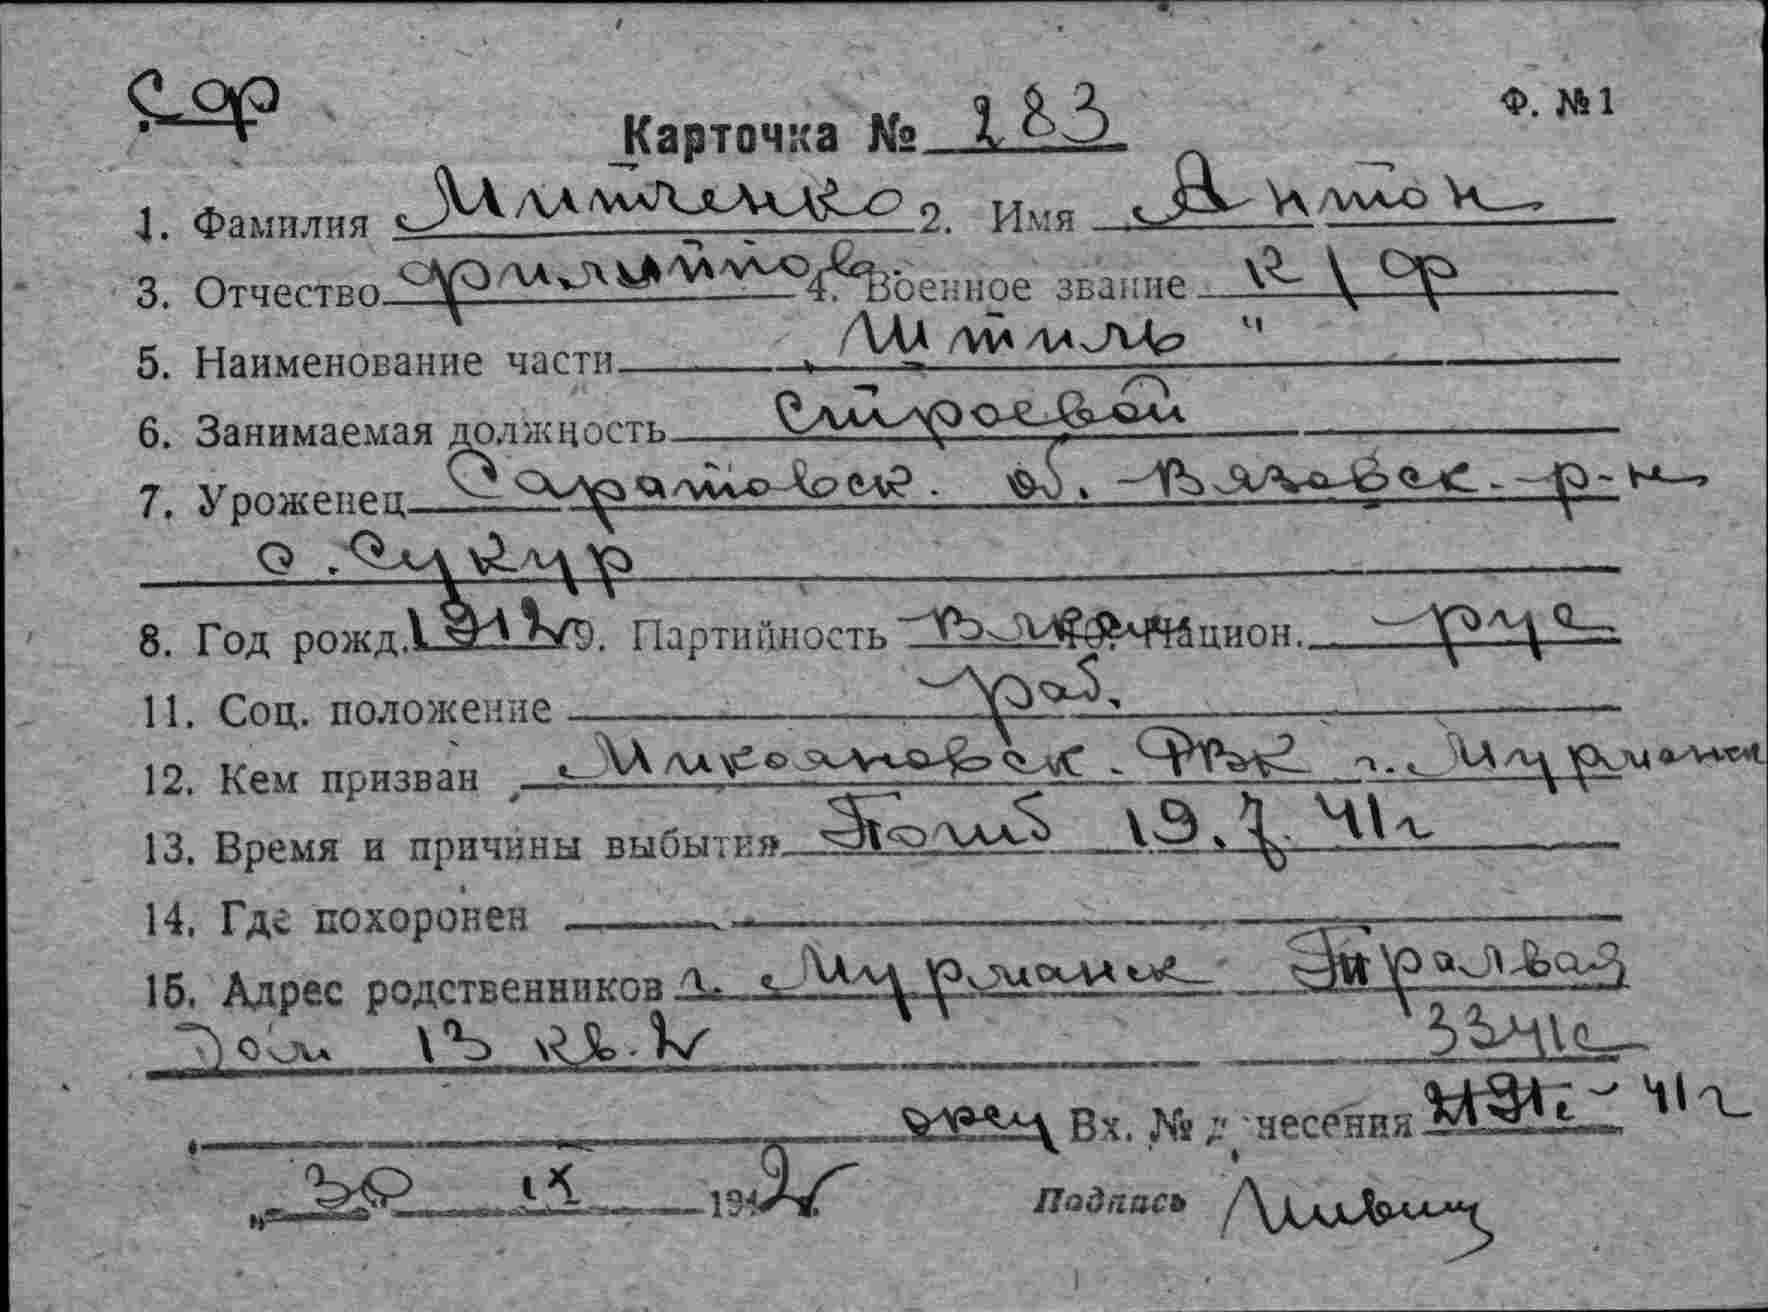 Сф
Ф. №1
Карточка № 283
1. Фамилия Митченко 2. Имя Антон
3. Отчество Филиппов. 4. Военное звание к/ф
5. Наименование части „Штиль"
6. Занимаемая должность строевой
7. Уроженец Саратовск. об. Вязовск. р-н
с. Сукур
8. Год рожд. 1912 9. Партийность 10. Национ. рус
11. Соц. положение раб.
12. Кем призван Микояновск. РВК г. Мурманск
13. Время и причины выбытия Погиб 19.7.41г
14. Где похоронен
15. Адрес родственников г. Мурманск Тралвая
Дом 13 кв. 2
3341с
Вх. № донесения 41г
„30 IX 1942
Подпись